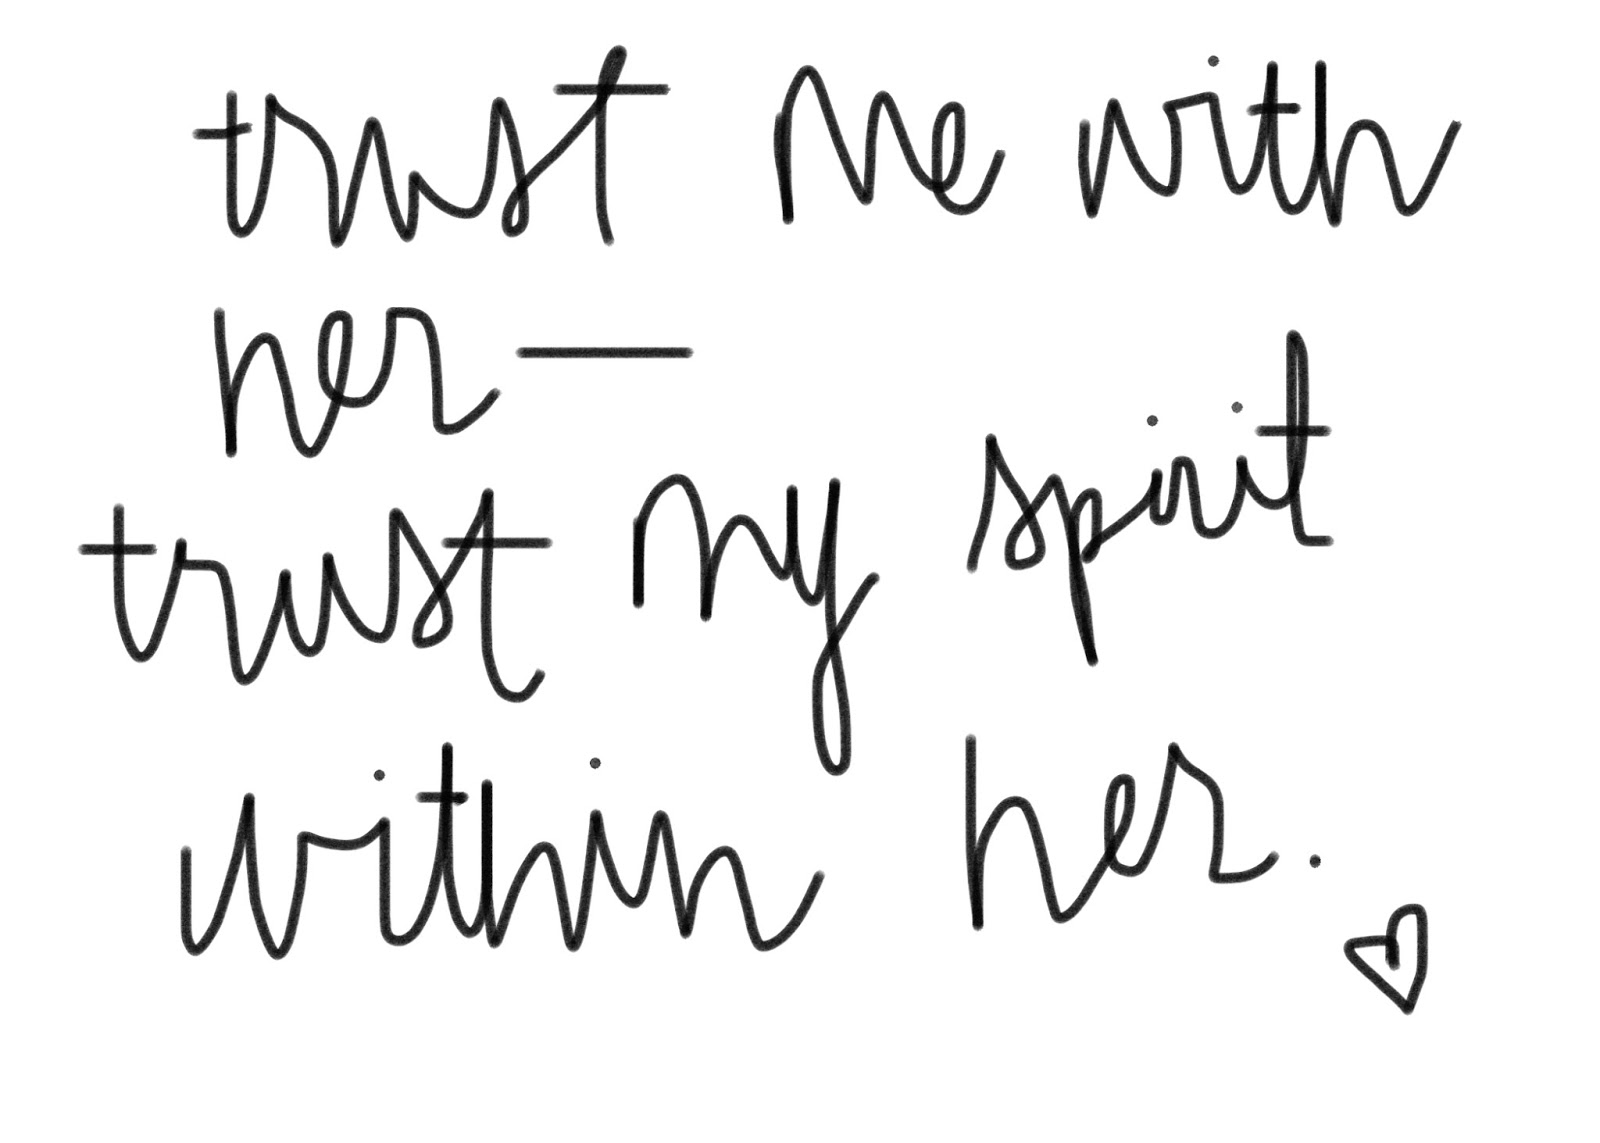 trust me with
her—
trust my spirit
within her.